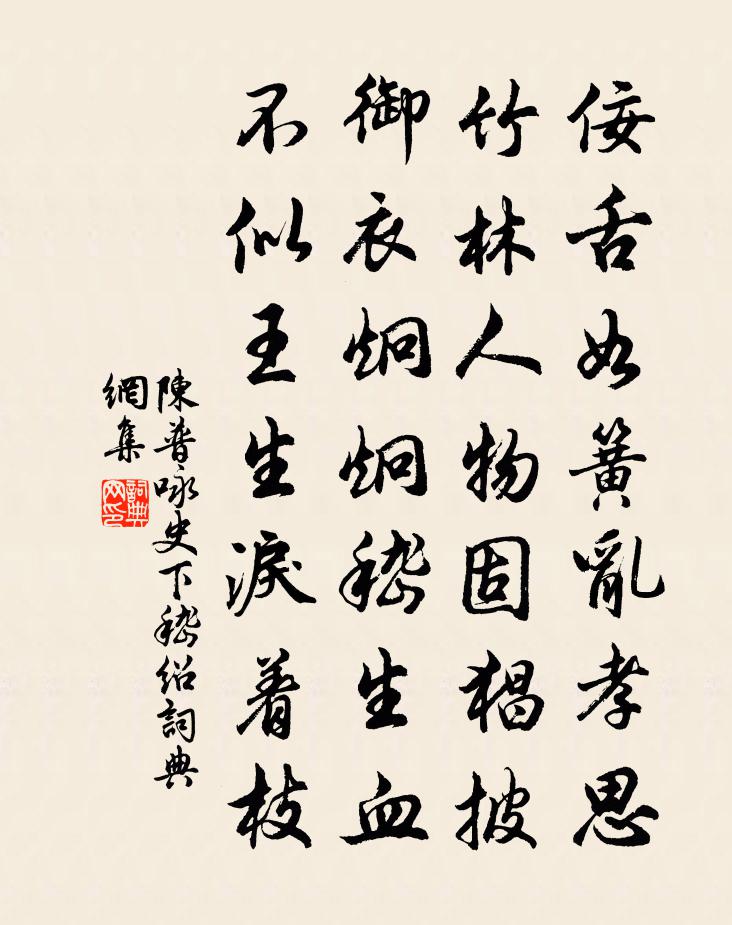 佞舌如簧亂孝思
竹林人物固猖披
御衣炯炯嵇生血
不似王生淚着枝
陳普咏史下嵇紹詞典
網集
詞典
网印